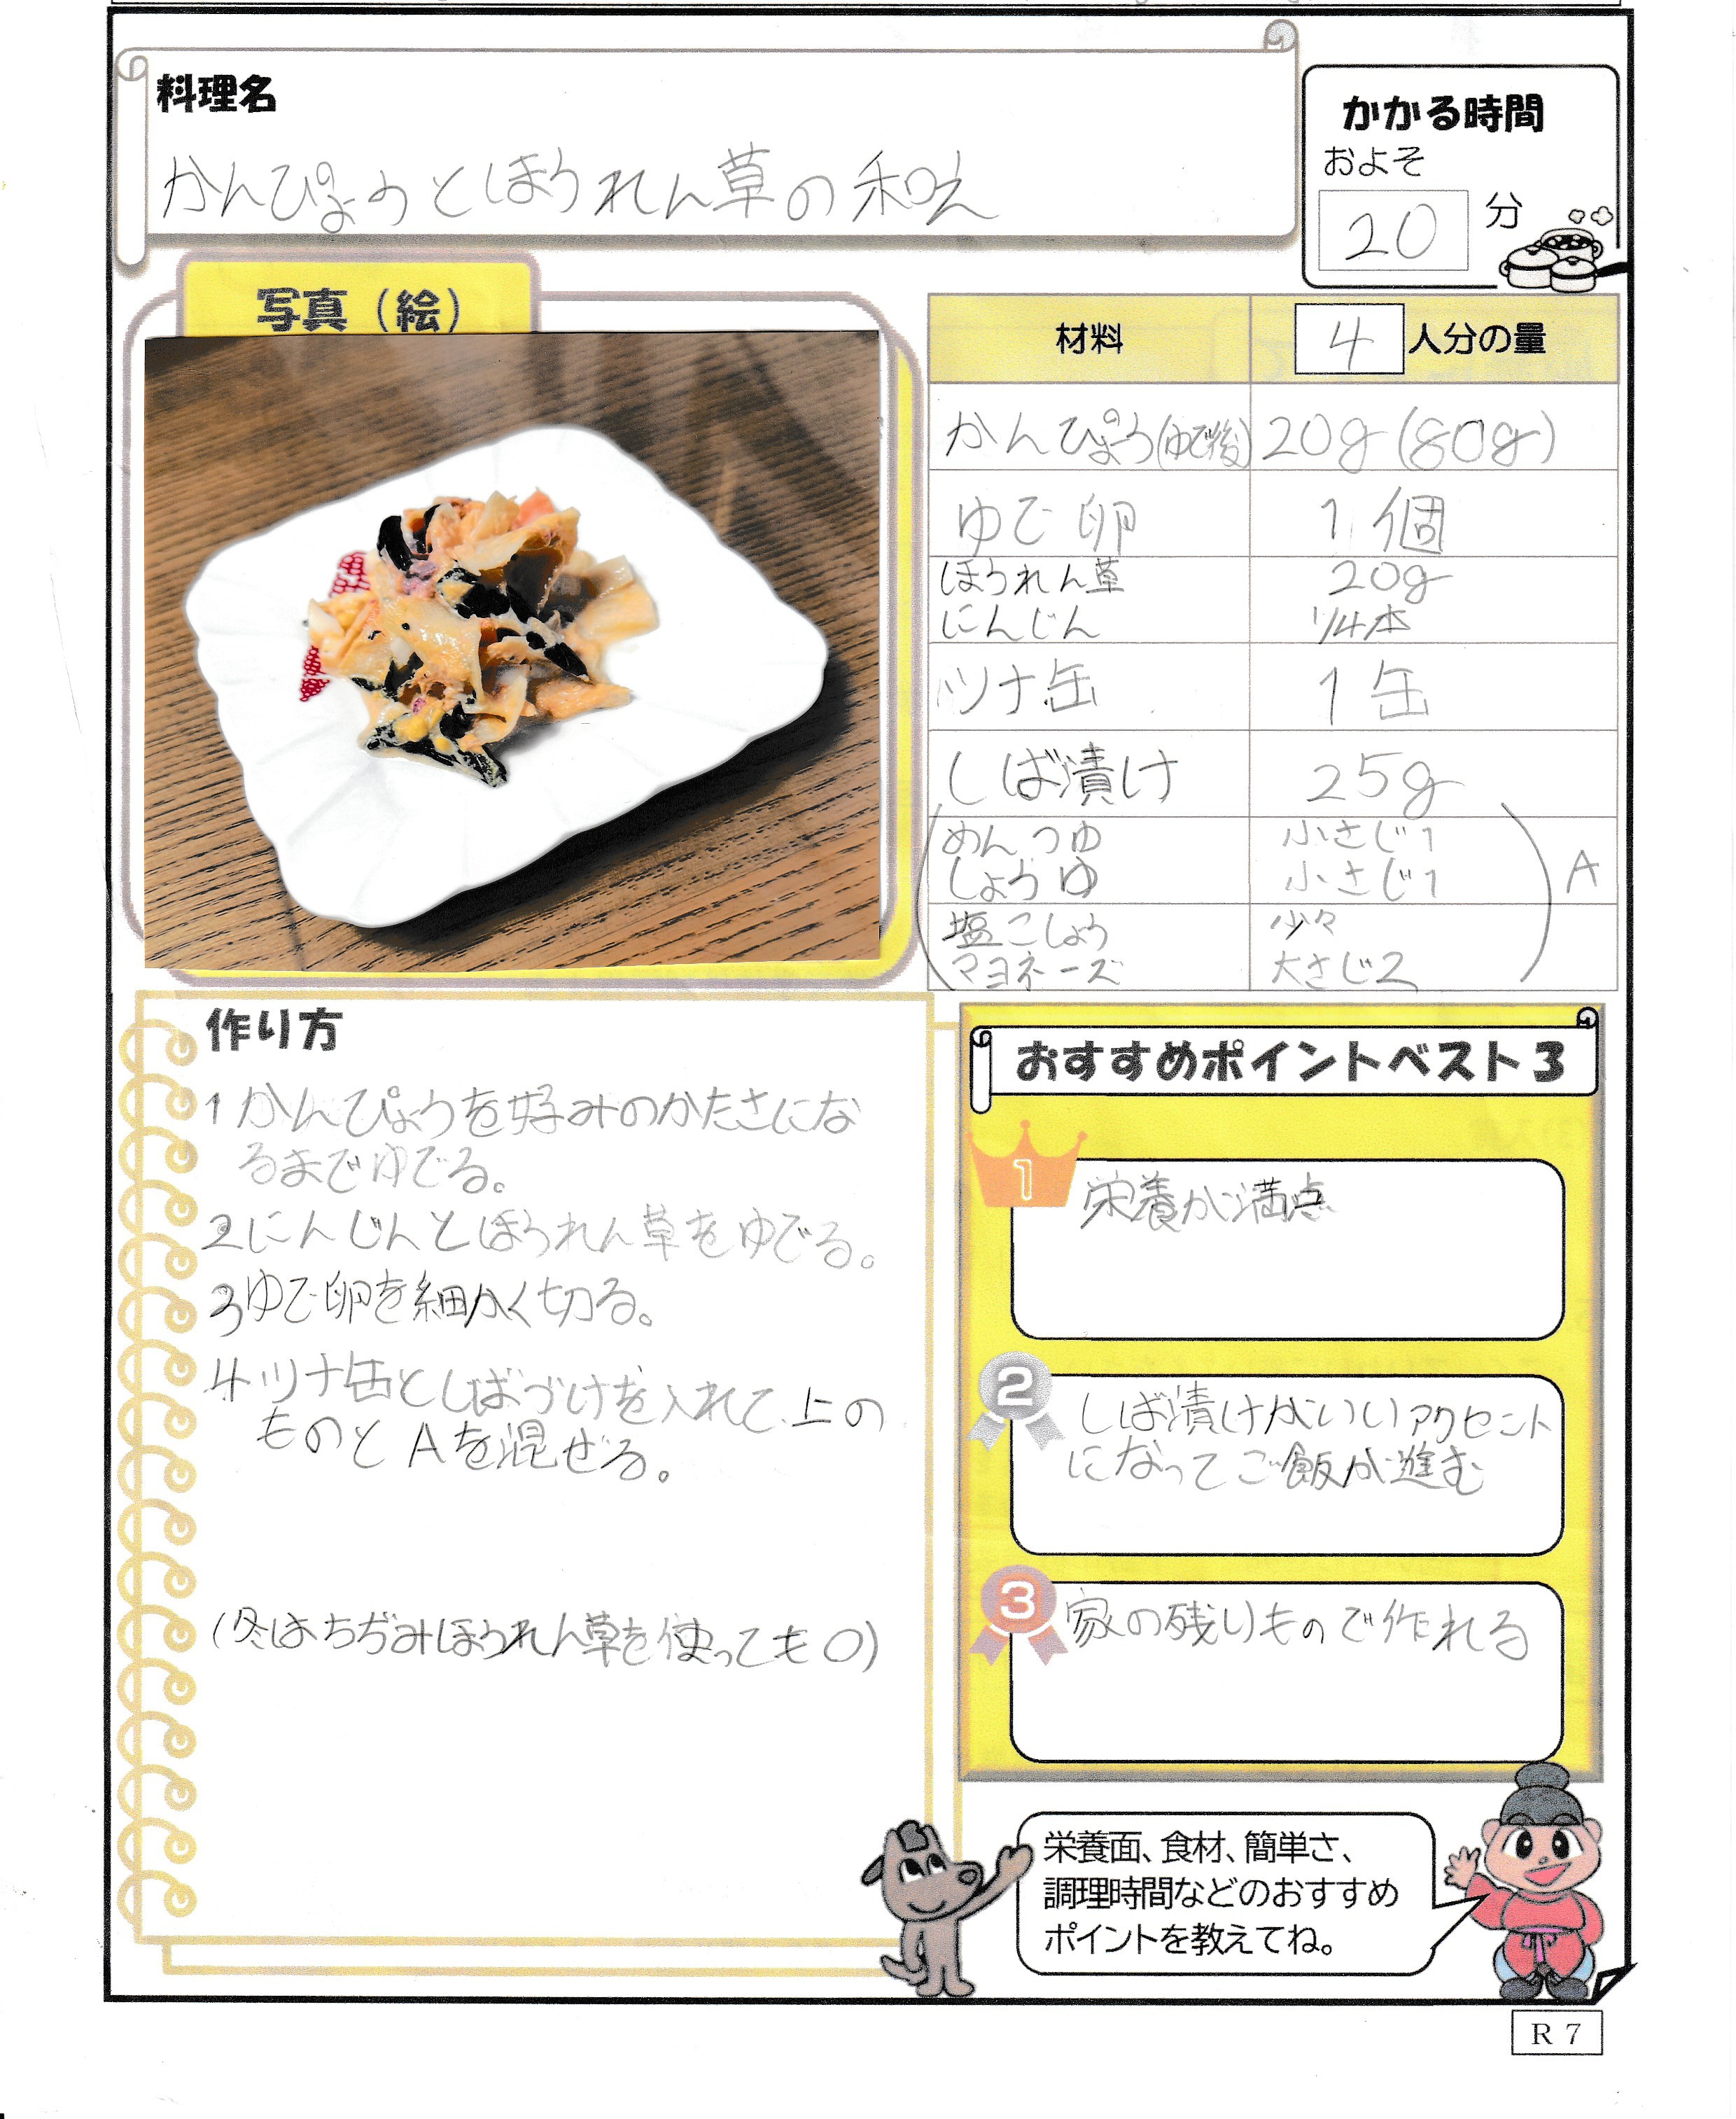 料理名
かんぴょうとほうれん草の和え
かかる時間
およそ
20 分
写真(絵)
材料 4人分の量
かんぴょう(ゆで後) 20g(80g)
ゆで卵 1個
ほうれん草 20g
にんじん 1/4本
ツナ缶 1缶
しば漬け 25g
めんつゆ 小さじ1
しょうゆ 小さじ1
A
塩こしょう 少々
マヨネーズ 大さじ2
作り方
1 かんぴょうを好みのかたさにな
るまでゆでる。
2 にんじんとほうれん草をゆでる。
3 ゆで卵を細かく切る。
4 ツナ缶としばづけを入れて、上の
ものとAを混ぜる。
(冬はちぢみほうれん草を使っても○)
おすすめポイントベスト3
1
栄養が満点
2
しば漬けがいいアクセント
になってご飯が進む
3
家の残りもので作れる
栄養面、食材、簡単さ、
調理時間などのおすすめ
ポイントを教えてね。
R7